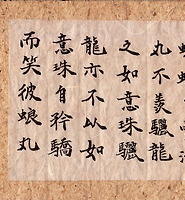 丸不羨驪龍
之如意珠驪
龍亦不以如
意珠自矜驕
而笑彼蜋丸